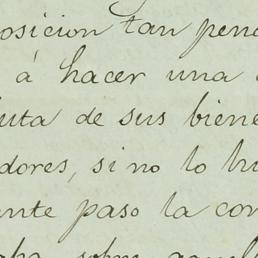 osicion tan pen
á hacer una
uta de sus biene
dores, si no lo hu
ente paso la con
sobre